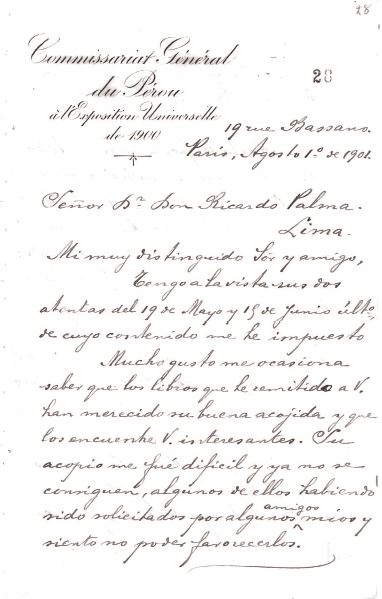 28
Commissariat Général
du Pérou
à l'Exposition Universelle
de 1900
28
19 rue Bassano.
París, Agosto 1º de 1901.
Señor Dr. Don Ricardo Palma.
Lima.
Mi muy distinguido Sór y amigo,
Tengo a la vista sus dos
atentas del 19 de Mayo y 15 de Junio últo,
de cuyo contenido me he impuesto
Mucho gusto me ocasiona
saber que los libros que he remitido a V.
han merecido su buena acojida y que
los encuentre V. interesantes. Su
acopio me fué dificil y ya no se
consiguen, algunos de ellos habiendo
sido solicitados por algunos amigos mios y
siento no poder favorecerlos.